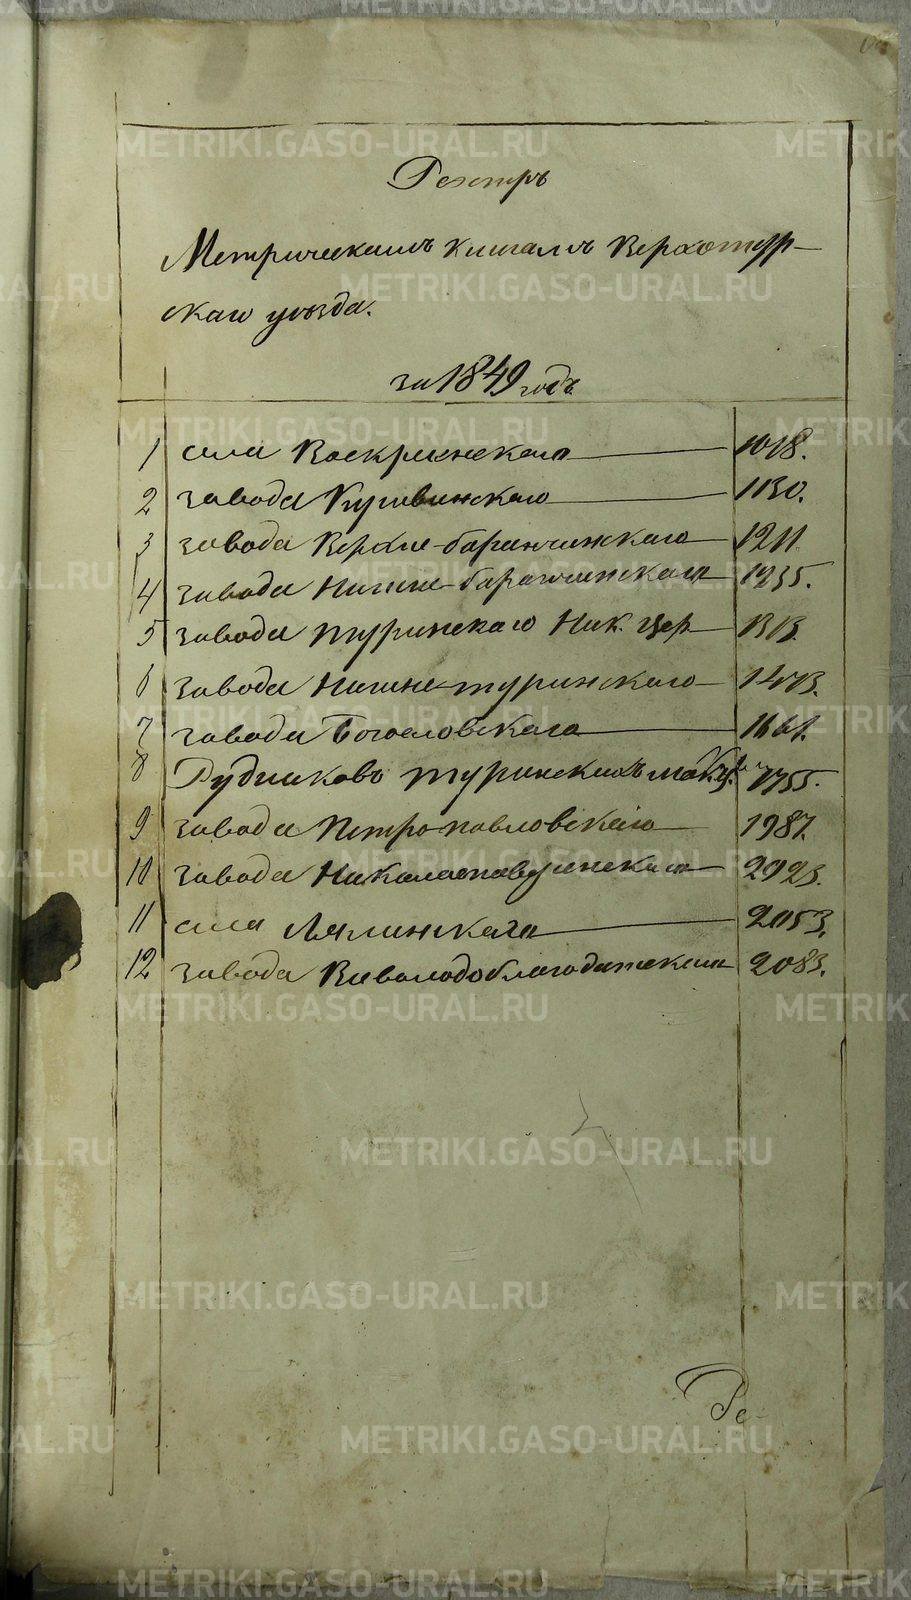 Реэстръ
Метрическимъ книгамъ Верхотур-
скаго уѣзда.
за 1849 годъ
1 села Воскресенскаго 1018.
2 завода Кушвинскаго 1130.
3 завода Верхне-баранчинскаго 1211.
4 завода Нижне-баранчинскаго 1235.
5 завода Туринскаго Ник. цер. 1313.
6 завода Нижне-туринскаго 1473.
7 завода Богословскаго 1661.
8 Рудниковъ Туринскихъ Мак. 1755.
9 завода Петропавловскаго 1987.
10 завода Николаепавдинскаго 2023.
11 села Лялинскаго 2053.
12 завода Всеволодоблагодатскаго 2083.
Ре-
METRIKI.GASO-URAL.RU